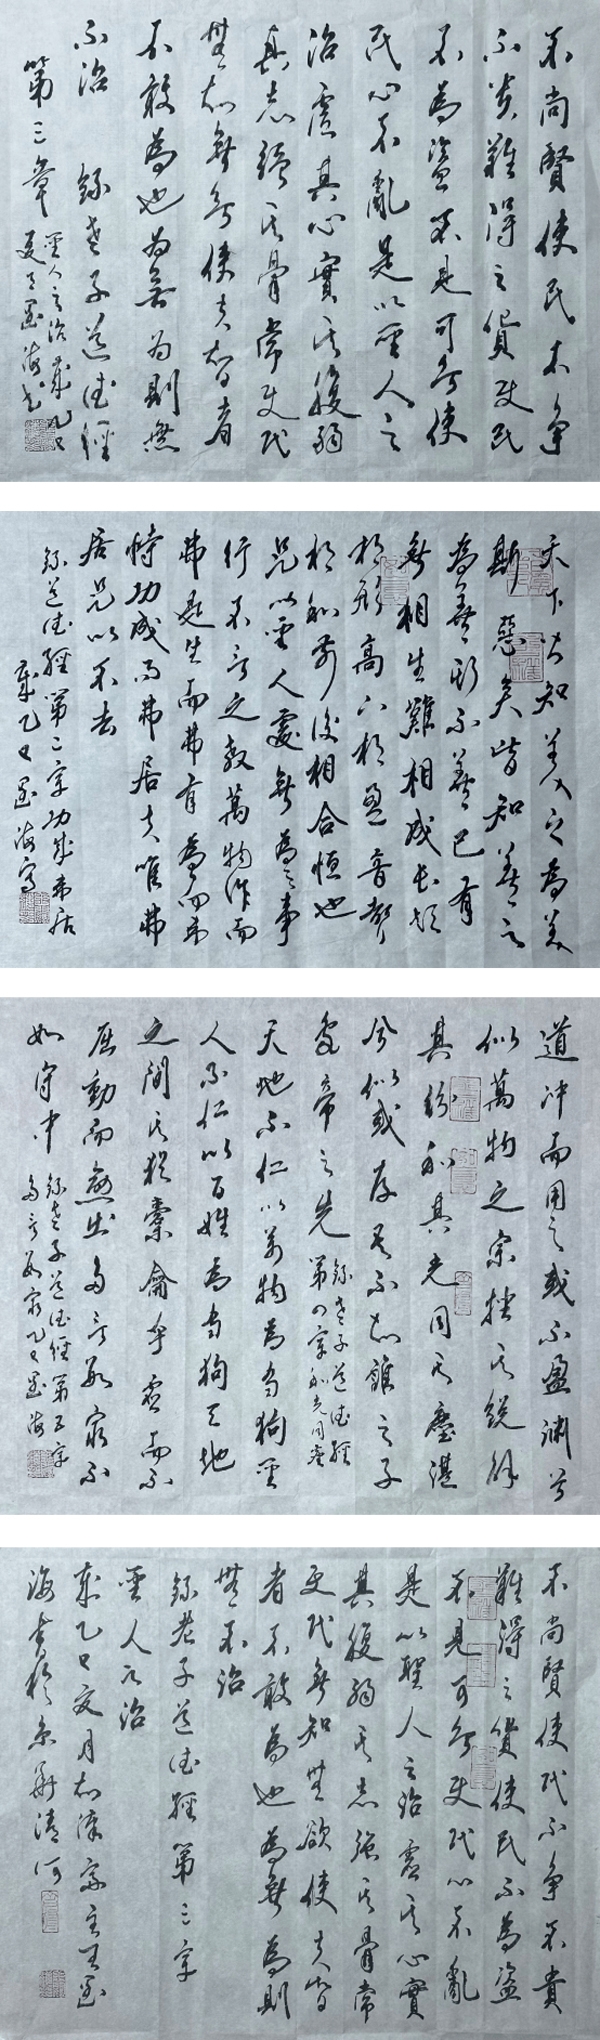 不尚賢使民不争
不貴難得之貨使民
不為盜不見可欲使
民心不亂是以聖人之
治虛其心實其腹弱
其志强其骨常使民
無知無欲使夫智者
不敢為也為無為則無
不治 錄老子道德經
第三章 聖人之治 歲乙巳
夏月墨海书
天下皆知美之為美
斯惡矣皆知善之
為善斯不善已有
無相生難相成長短
相形高下相盈音聲
相和前後相合恒也
是以聖人處無為之事
行不言之教萬物作而
弗是生而弗有為而弗
恃功成而弗居夫唯弗
居是以不去
錄道德經第二章功成弗居
歲乙巳墨海寫
道冲而用之或不盈渊兮
似萬物之宗挫其锐解
其紛和其光同其塵湛
兮似或存吾不知誰之子
象帝之先 錄老子道德經
第四章和光同塵
天地不仁以萬物為芻狗聖
人不仁以百姓為芻狗天地
之間其犹橐龠乎虚而不
屈動而愈出多言數窮不
如守中 錄老子道德經第五章
多言數窮乙巳墨海
不尚賢使民不争不貴
難得之貨使民不為盜
不見可欲使民心不亂
是以聖人之治虛其心實
其腹弱其志强其骨常
使民無知無欲使夫智
者不敢為也為無為則
無不治
錄老子道德經第三章
聖人之治
歲乙巳文月知津齋主王墨
海書於京華清河